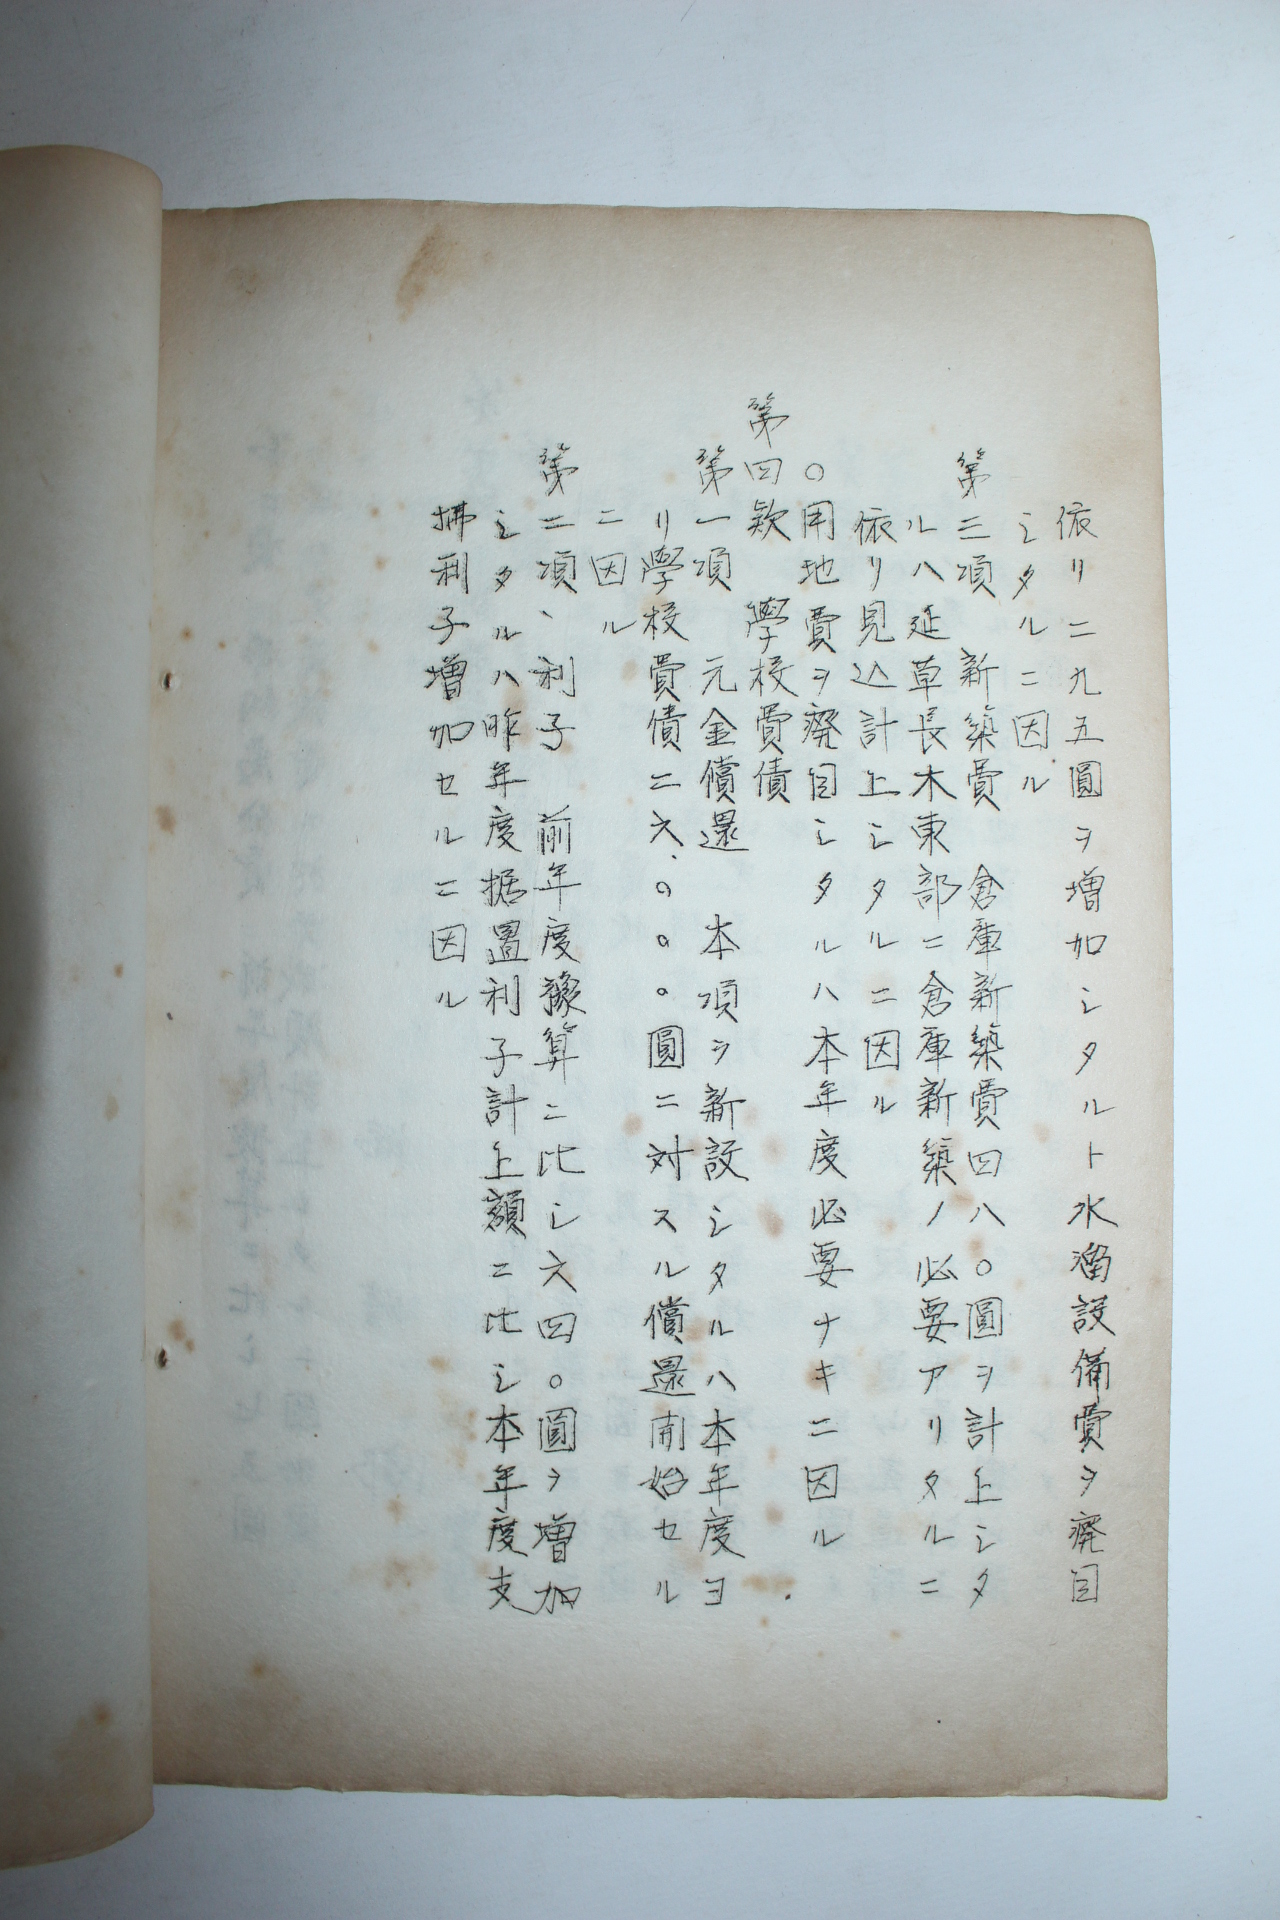 依リ二九五圓ヲ増加シタルト水溜設備費ヲ廃目
シタルニ因ル
第三項 新築費 倉庫新築費四八〇圓ヲ計上シタ
ルハ延草長木東部ニ倉庫新築ノ必要アリタルニ
依リ見込計上シタルニ因ル
〇用地費ヲ廃目シタルハ本年度必要ナキニ因ル
第四款 學校費債
第一項 元金償還 本項ヲ新設シタルハ本年度ヨ
リ學校費債二六、〇〇〇圓ニ対スル償還開始セル
ニ因ル
第二項、利子 前年度豫算ニ比シ六四〇圓ヲ増加
シタルハ昨年度据置利子計上額ニ比シ本年度支
拂利子増加セルニ因ル